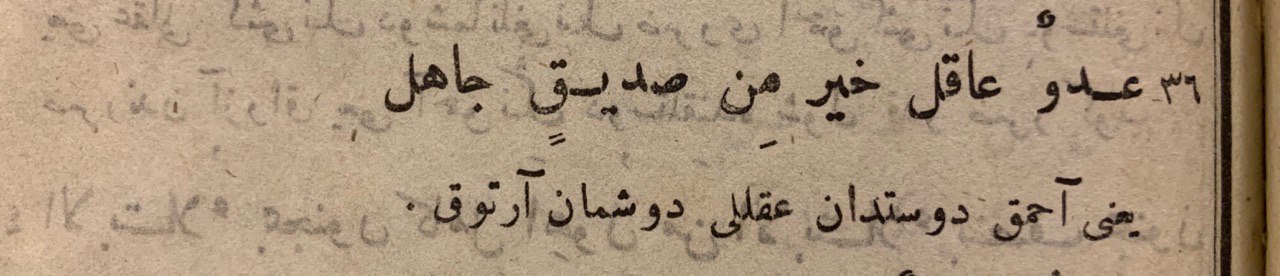 ٣٦ عـدوٌ عاقل خير مِن صديـقٍ جاهل
يعنى آحمق دوستدان عقللى دوشمان آرتوق .